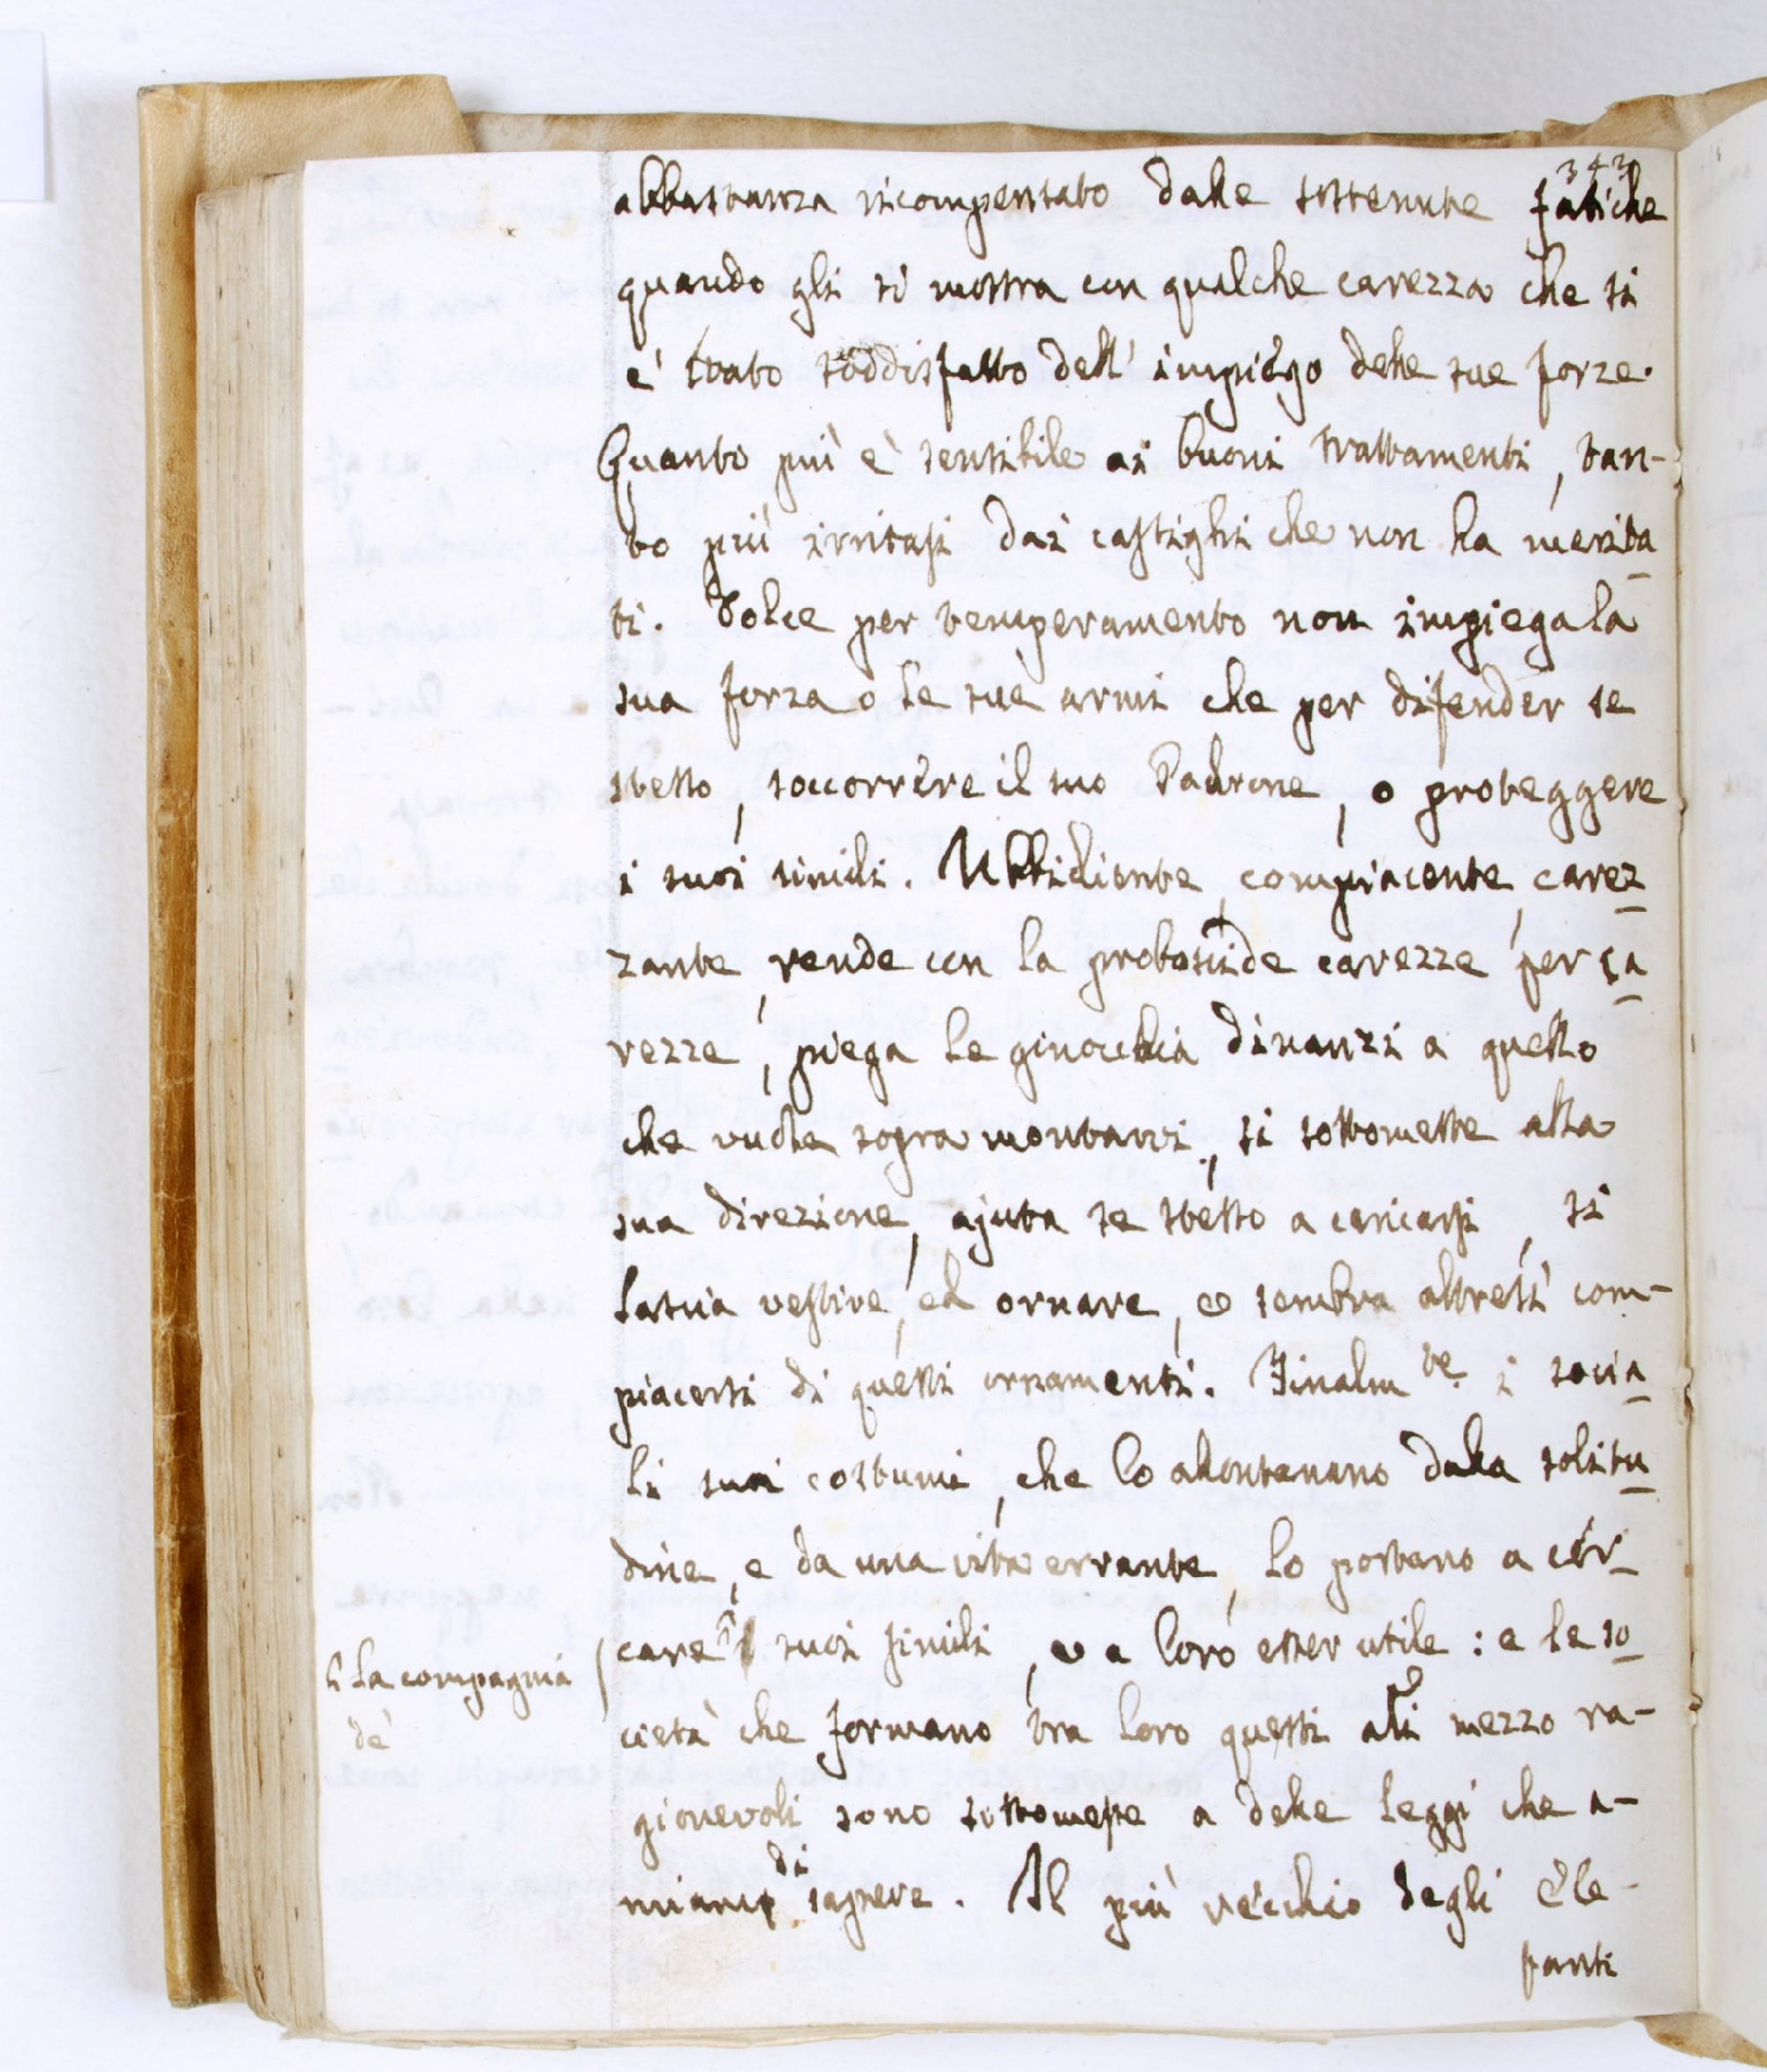 343
abbastanza ricompensato dalle sostenute fatiche
quando gli si mostra con qualche carezza che si
e' stato soddisfatto dell' impiego delle sue forze.
Quanto più è sensibile ai buoni trattamenti, tan-
to più irritasi dai castighi che non ha merita
ti. Dolce per temperamento non impiega la
sua forza o le sue armi che per difender se
stesso, soccorrere il suo Padrone, o proteggere
i suoi simili. Ubbidiente, compiacente, carez
zante, rende con la proboscide carezze per ca
rezze, piega le ginocchia dinanzi a quello
che vuole sopra montarvi, si sottomette alla
sua direzione, ajuta se stesso a caricarsi, si
lascia vestire, ed ornare, e sembra altresì com-
piacersi di questi ornamenti. Finalmte i socia
li suoi costumi, che lo allontanano dalla solitu
dine, e da una vita errante, lo portano a cer
care suoi simili, e a loro esser utile : e le so
la compagnia
de'
cietà che formano tra loro questi ali mezzo ra-
gionevoli sono sottomesse a delle leggi che a-
miamo di sapere. Al più vecchio degli Ele-
fanti